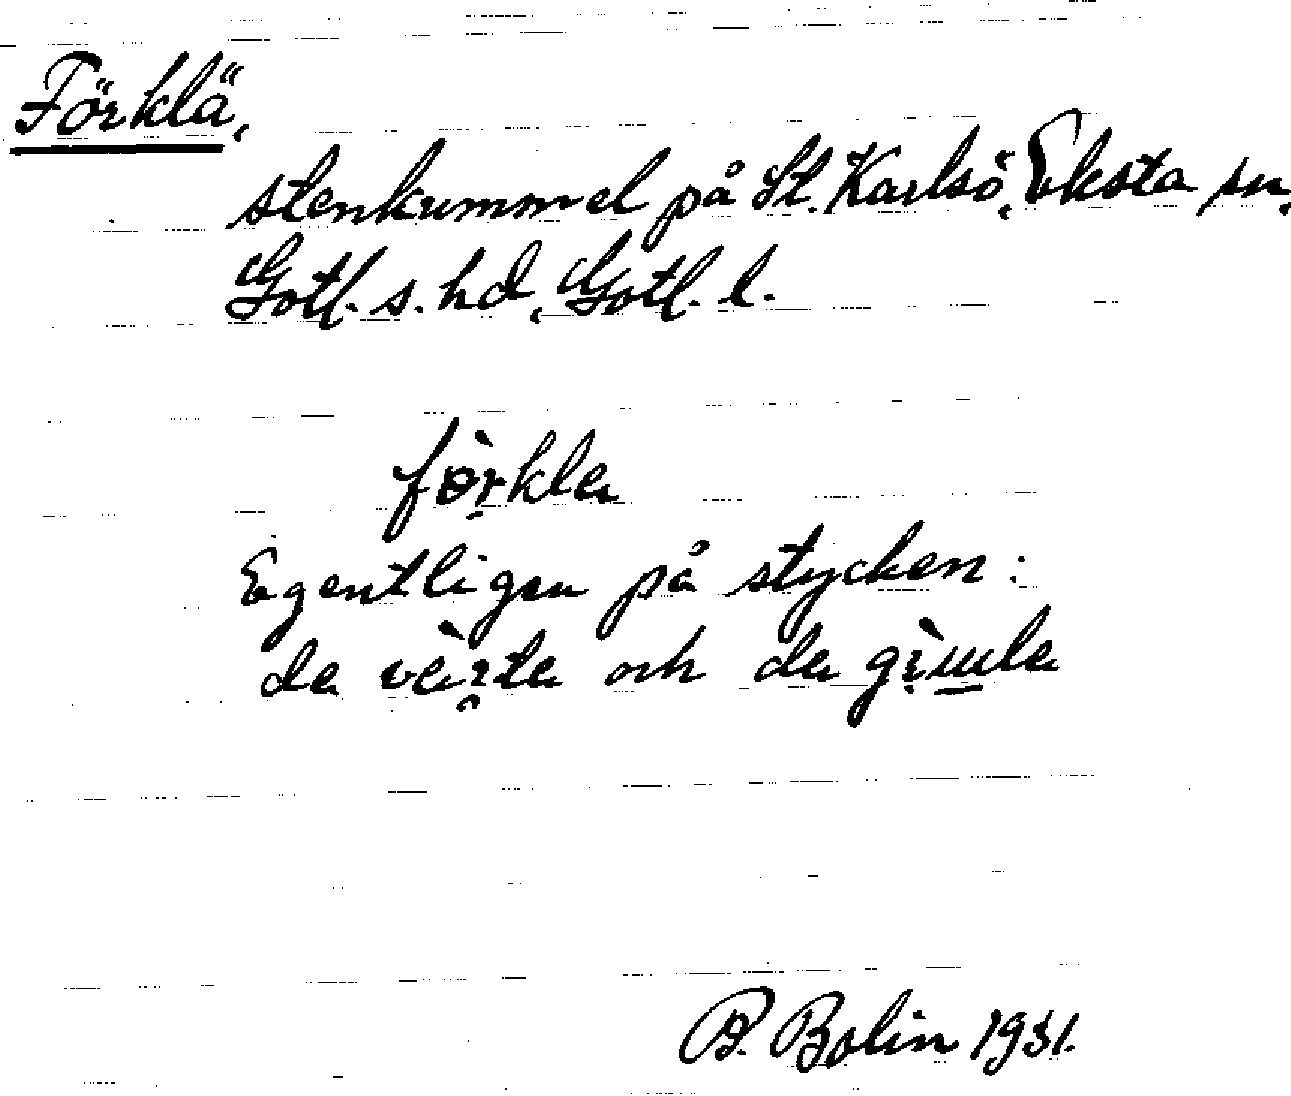 Förklä,
stenkummel på St. Karlsö, Eksta sn,
Gotl. s. hd, Gotl. l.
fòrkla
Egentligen på stycken:
da och da
B. Bolin 1931.